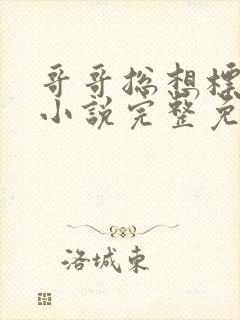 哥哥总想標
小説完整免
洛城東